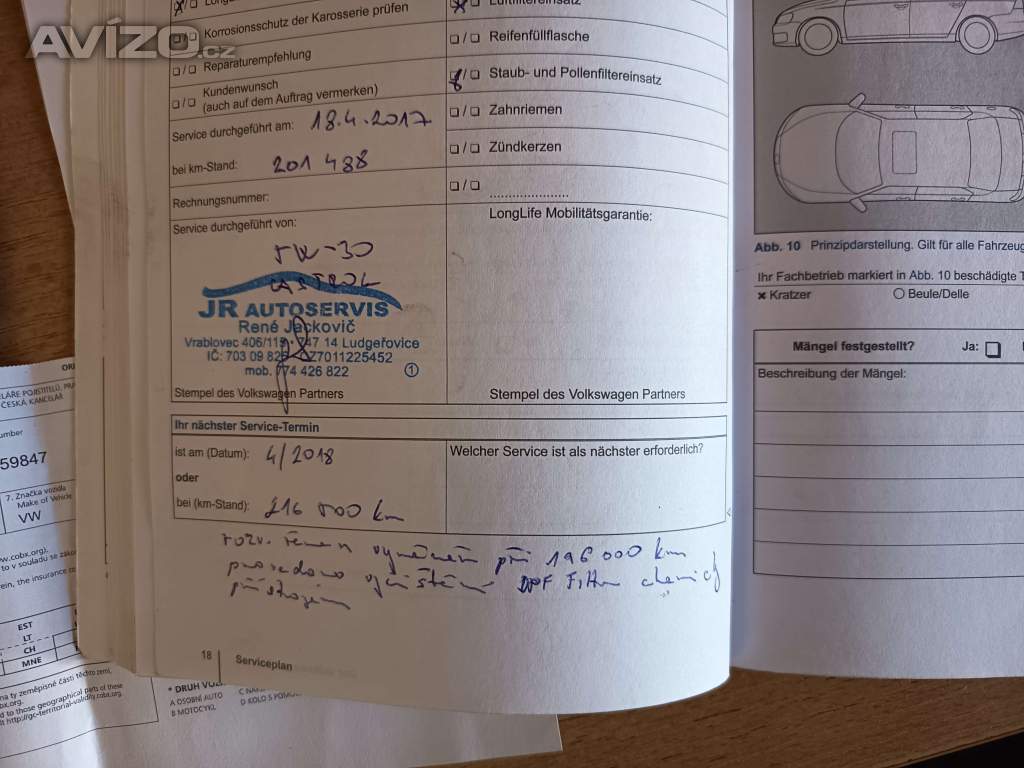 AVÍZO.cz
Korrosionsschutz der Karosserie prüfen
Reparaturempfehlung
Kundenwunsch
(auch auf dem Auftrag vermerken)
Service durchgeführt am: 18.4.2017
bei km-Stand: 201 488
Rechnungsnummer:
Service durchgeführt von:
5W-30
CASTROL
JR AUTOSERVIS
René Jackovič
Vrablovec 406/119 747 14 Ludgeřovice
mob. 774 426 822
1
Stempel des Volkswagen Partners
Luftfiltereinsatz
Reifenfüllflasche
Staub- und Pollenfiltereinsatz
Zahnriemen
Zündkerzen
LongLife Mobilitätsgarantie:
Stempel des Volkswagen Partners
Ihr nächster Service-Termin
ist am (Datum): 4/2018
oder
bei (km-Stand): 216 000 km
Welcher Service ist als nächster erforderlich?
rozv. řemen vyměněn při 196 000 km
provedeno vyčištění DPF Filtru
přístrojem
18 Serviceplan
Abb. 10 Prinzipdarstellung. Gilt für alle Fahrzeug
Ihr Fachbetrieb markiert in Abb. 10 beschädigte
Kratzer
Beule/Delle
Mängel festgestellt? Ja:
Beschreibung der Mängel:
ČESKÁ KANCELÁŘ
59847
7. Značka vozidla
Make of Vehicle
VW
EST
LT
CH
MNE
* DRUH
A OSOBNÍ AUTO
B MOTOCYKL